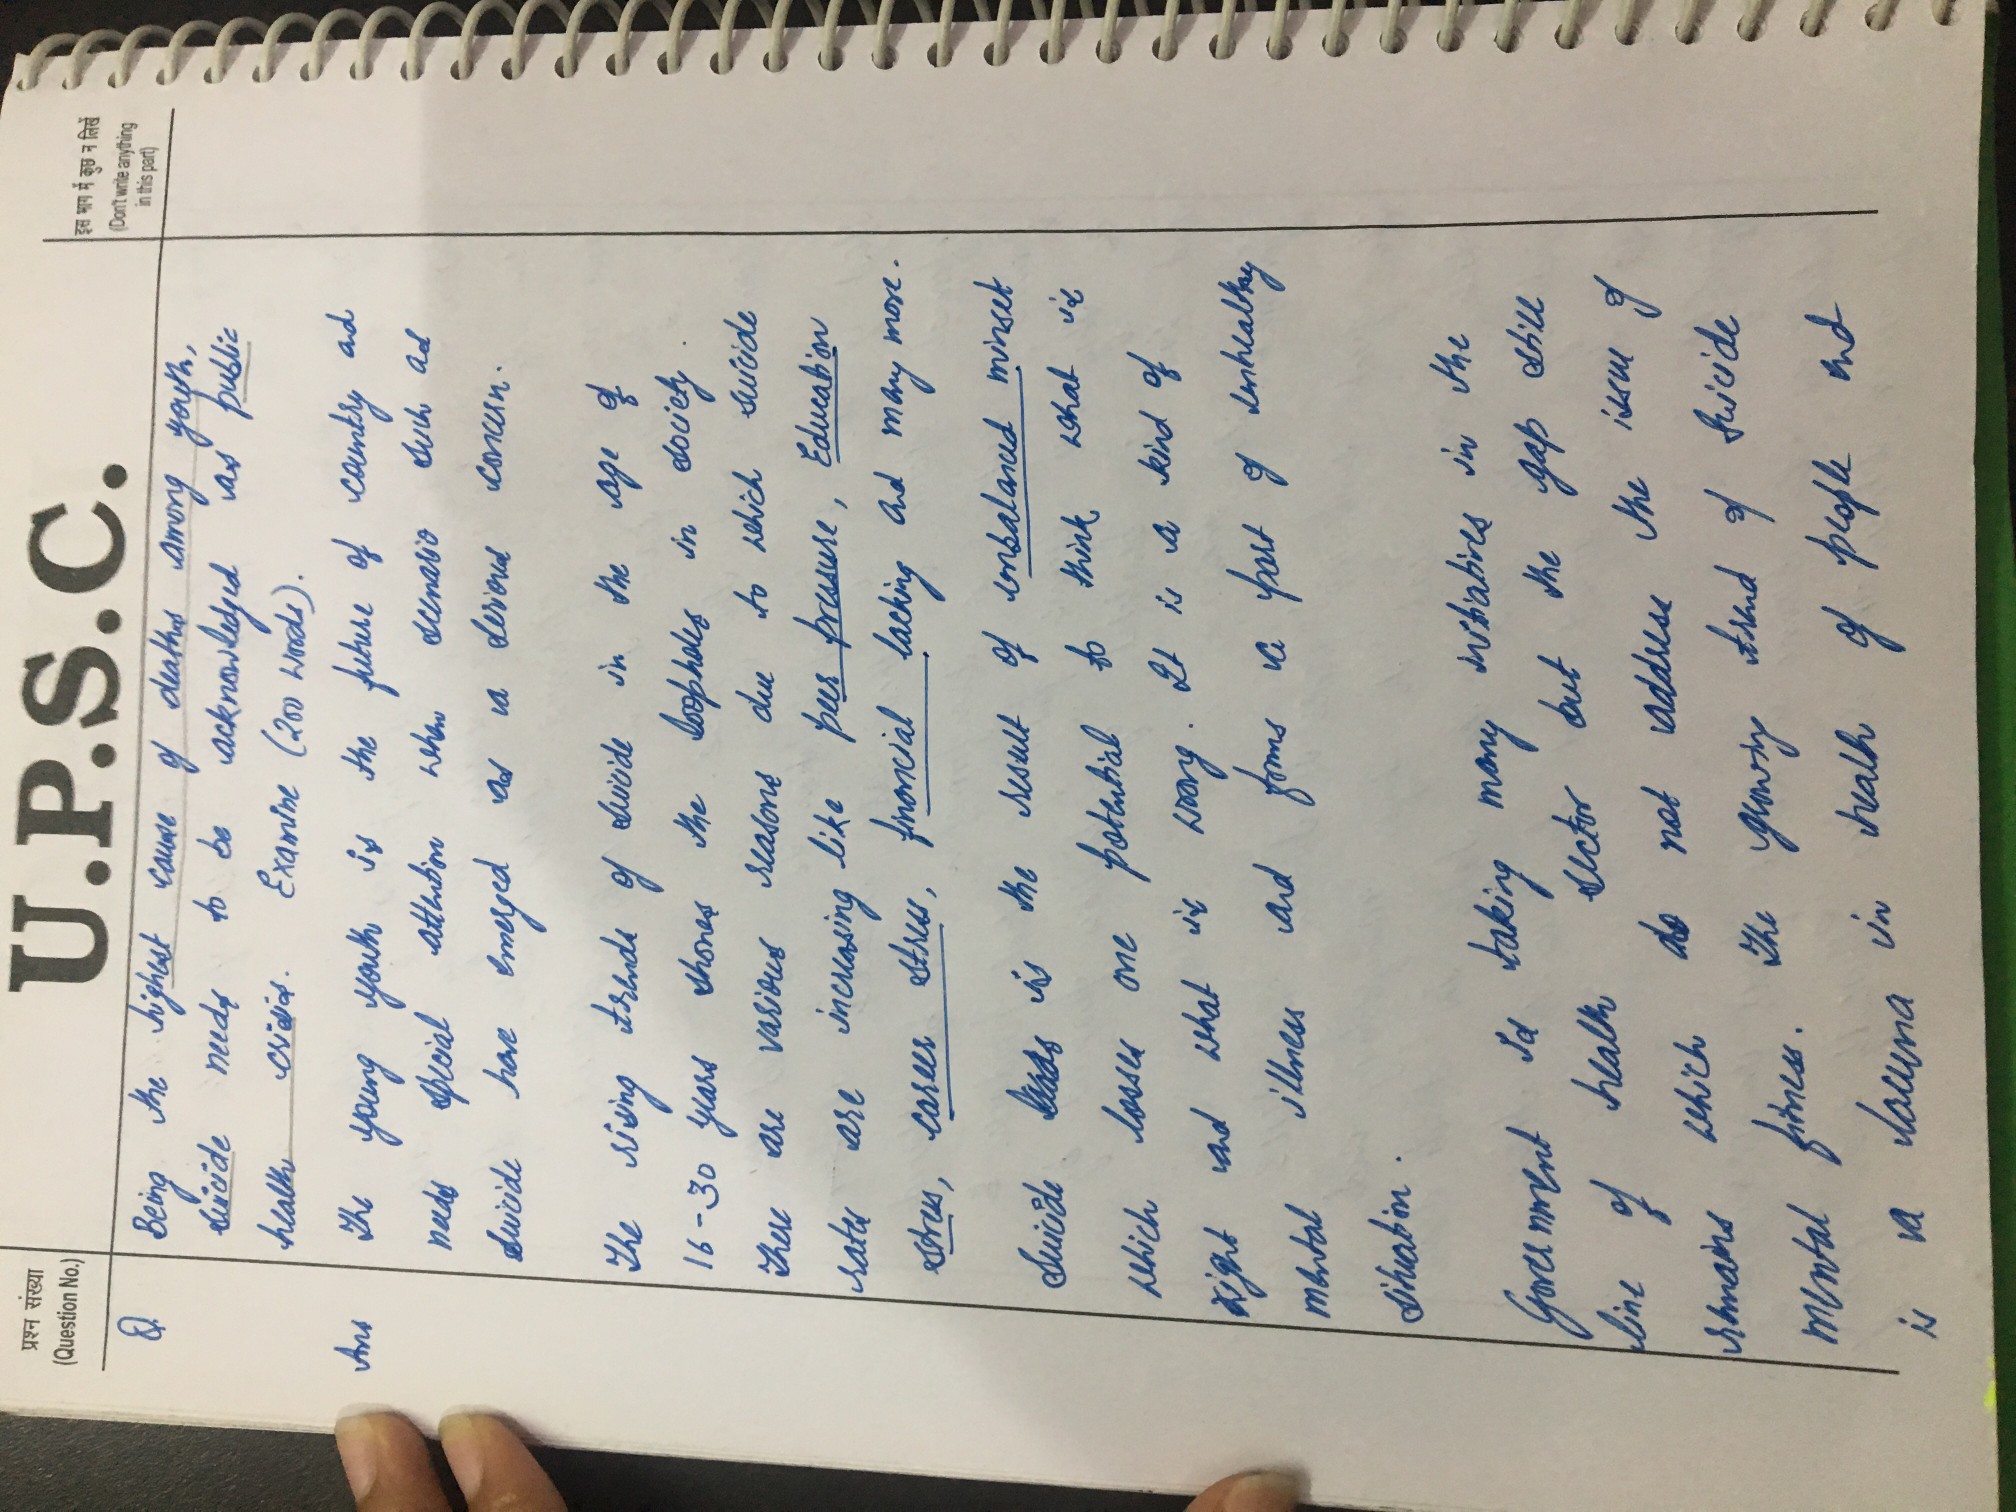 U.P.S.C.
प्रश्न संख्या
(Question No.)
इस भाग में कुछ न लिखें
(Don't write anything
in this part)
Q Being the highest cause of deaths among youth,
suicide needs to be acknowledged as public
health crisis. Examine (200 words).
Ans The young youth is the future of country and
needs special attention when scenario such as
suicide have emerged as a serious concern.
The rising trends of suicide in the age of
16-30 years shones the loopholes in society.
There are various reasons due to which suicide
rates are increasing like peer pressure, Education
stress, career stress, financial lacking and many more.
Suicide is the result of imbalanced minset
which losses one potential to think what is
right and what is wrong. It is a kind of
mental illness and forms a part of unhealthy
situation.
Government is taking many initiatives in the
line of health sector but the gap still
remains which do not address the issue of
mental finess. The growing trend of suicide
is a lacuna in health of people and